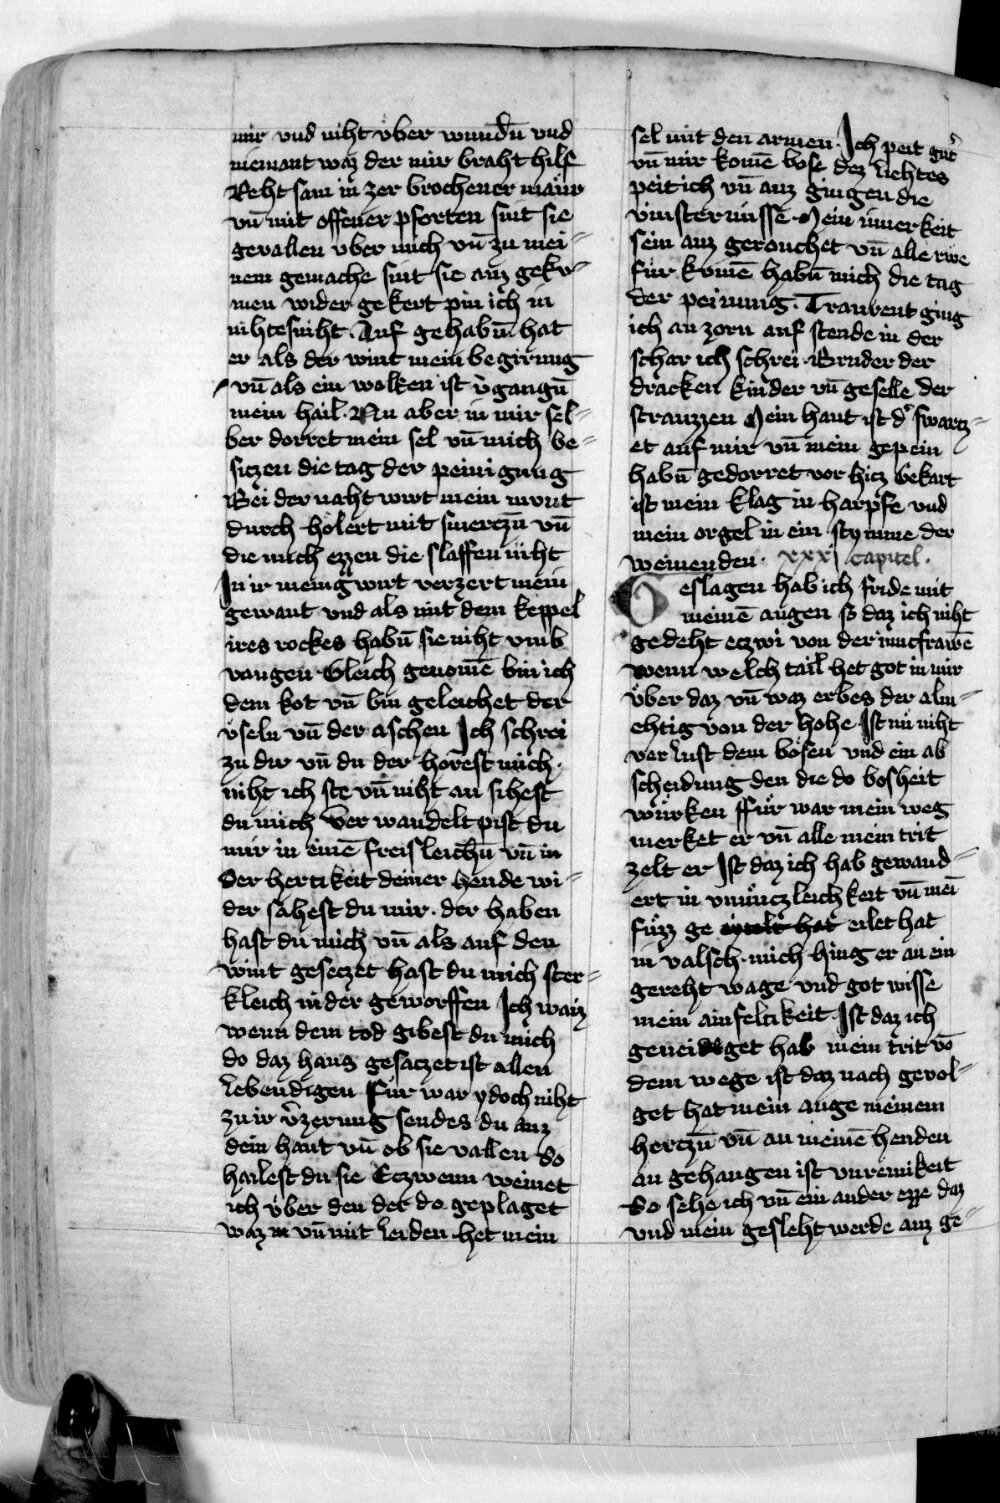 mir vnd niht v̈ber wundn̄ vnd
niemant waz der mir braht hilf
Reht sam in zer brochener maür
vn̄ mit offener pforten sint sie
gevallen vber mich vn̄ zu mei⸗
nem gemache sint sie auz gekv⸗
men wider gekert pin ich in
nihtesniht. Auf gehabn̄ hat
er als der wint mein begirung
vn̄ als ein wolken ist v̉gangn̄
mein hail. Nu aber in mir sel⸗
ber dorret mein sel vn̄ mich be⸗
siczen die tag der peinigung
Bei der naht wirt mein munt
durch hölert mit smerczn̄ vn̄
die mich ezzen die slaffen niht
In ir menig wirt verzert mein
gewant vnd als mit dem keppel
ires rockes habn̄ sie niht vmb
vangen Gleich genom̄e bin ich
dem kot vn̄ bin geleichet der
v̈seln vn̄ der aschen Ich schrei
zu dir vn̄ du der horest mich.
niht ich ste vn̄ niht an sihest
du mich Ver wandelt pist du
mir in einē freisleichn̄ vn̄ in
der hertikeit deiner hende wi⸗
der sahest du mir. der haben
hast du mich vn̄ als auf den
wint geseczet hast du mich ster⸗
kleich nider geworffen Ich waiz
wenn dem tod gibest du mich
do daz haus gesaczet ist allen
lebendigen Für war ydoch niht
zu ir v̉zerung sendes du auz
dein hant vn̄ ob sie vallen do
hailest du sie Eczwenn weinet
ich v̈ber den der do geplaget
waz vn̄ mit leiden het mein
sel mit den armen. Ich peit gut̉
vn̄ mir kom̄e bose dez liehtes
peit ich vn̄ auz gingen die
vinsternisse. Mein innerkeit
sein auz gerouchet vn̄ alle rwe
für kvmē habn̄ mich die tag
der peinung. Traurent ging
ich an zorn auf stende in der
schar ich schrei. Bruder der
dracken kinder vn̄ geselle der
strauzzen Mein haut ist d̉ swarcz⸗
et auf mir vn̄ mein gepein
habn̄ gedorret vor hicz bekart
ist mein klag in harpfe vnd
mein orgel in ein stymme der
weinenden. xxxj capitel.
Geslagen hab ich fride mit
meinē augen so daz ich niht
gedeht eczwi von der iuncfrawē
wenn welch tail het got in mir
v̈ber daz vn̄ waz erbes der alm⸗
ehtig von der hohe Ist nü niht
verlust dem bösen vnd ein ab
scheidung den die do bosheit
würken Ffür war mein weg
merket er vn̄ alle mein trit
zelt er Ist daz ich hab gewand⸗
ert in vnnüczleichkeit vn̄ mei
füzz ge eilet hat
in valsch. mich hing er an ein
gereht wage vnd got wisse
mein ainfeltikeit Ist daz ich
geneiget hab mein trit vō
dem wege ist daz nach gevol⸗
get hat mein auge meinem
herczn̄ vn̄ an meinē henden
an gehangen ist vnreinikeit
So sehe ich vn̄ ein ander ezze daz
vnd mein gesleht werde auz ge⸗